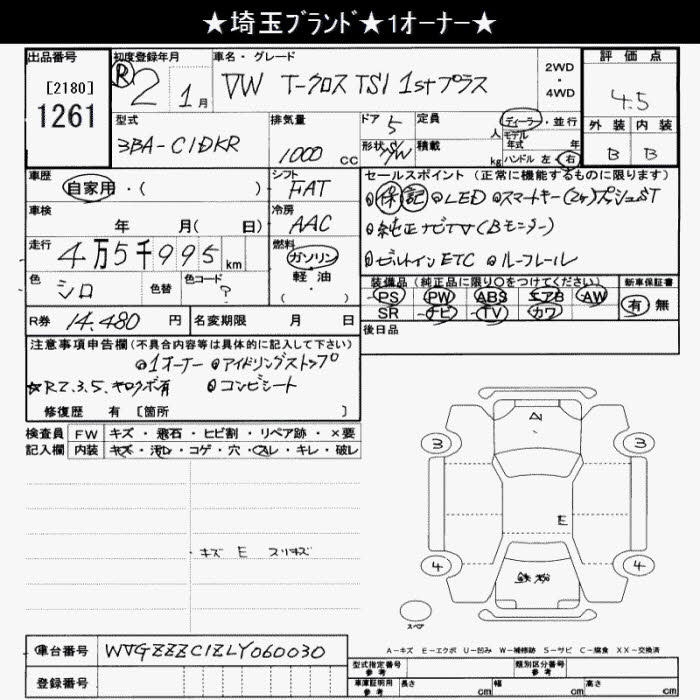 ★埼玉ブランド★1オーナー★
出品番号
[2180]
1261
初度登録年月
R 2 1月
車名・グレード
VW T-クロス TSI 1stプラス
2WD
・
4WD
評価点
4.5
外装 内装
B B
型式
3BA-C1DKR
排気量
1000 cc
ドア 5
形状 S/W
定員 人
積載 kg
ディーラー・並行
モデル年式 年
ハンドル 左・右
車歴
自家用・( )
シフト
FAT
車検
年 月( 日)
冷房
AAC
走行
4万5千995km
燃料
ガソリン
軽油
( ・ )
色
シロ
色替
色コード
?
R券 14.480円
名変期限 月 日
セールスポイント (正常に機能するものに限ります)
◎保記 ◎LED ◎スマートキー(2ヶ)プッシュST
◎純正ナビTV(Bモニター)
◎ビルトインETC ◎ルーフレール
装備品 (純正品に限り〇をつけてください)
PS PW ABS エアB AW
SR ナビ TV カワ
新車保証書
有 無
後日品
注意事項申告欄(不具合内容等は具体的に記入して下さい)
◎1オーナー ◎アイドリングストップ
★R2.3.5.キロクボ有 ◎コンビシート
修復歴 有 [箇所 ]
検査員 FW キズ・飛石・ヒビ割・リペア跡・×要
記入欄 内装 キズ・汚れ・コゲ・穴・スレ・キレ・破レ
キズ E スリキズ
3 3
A
E
4 4
スペア
A-キズ E-エクボ U-凹み W-補修跡 S-サビ C-腐食 XX-交換済
車台番号 WVGZZZC1ZLY060030
登録番号
型式指定番号 参考
類別区分番号 参考
車庫証明用 参考 長さ cm 幅 cm 高さ cm